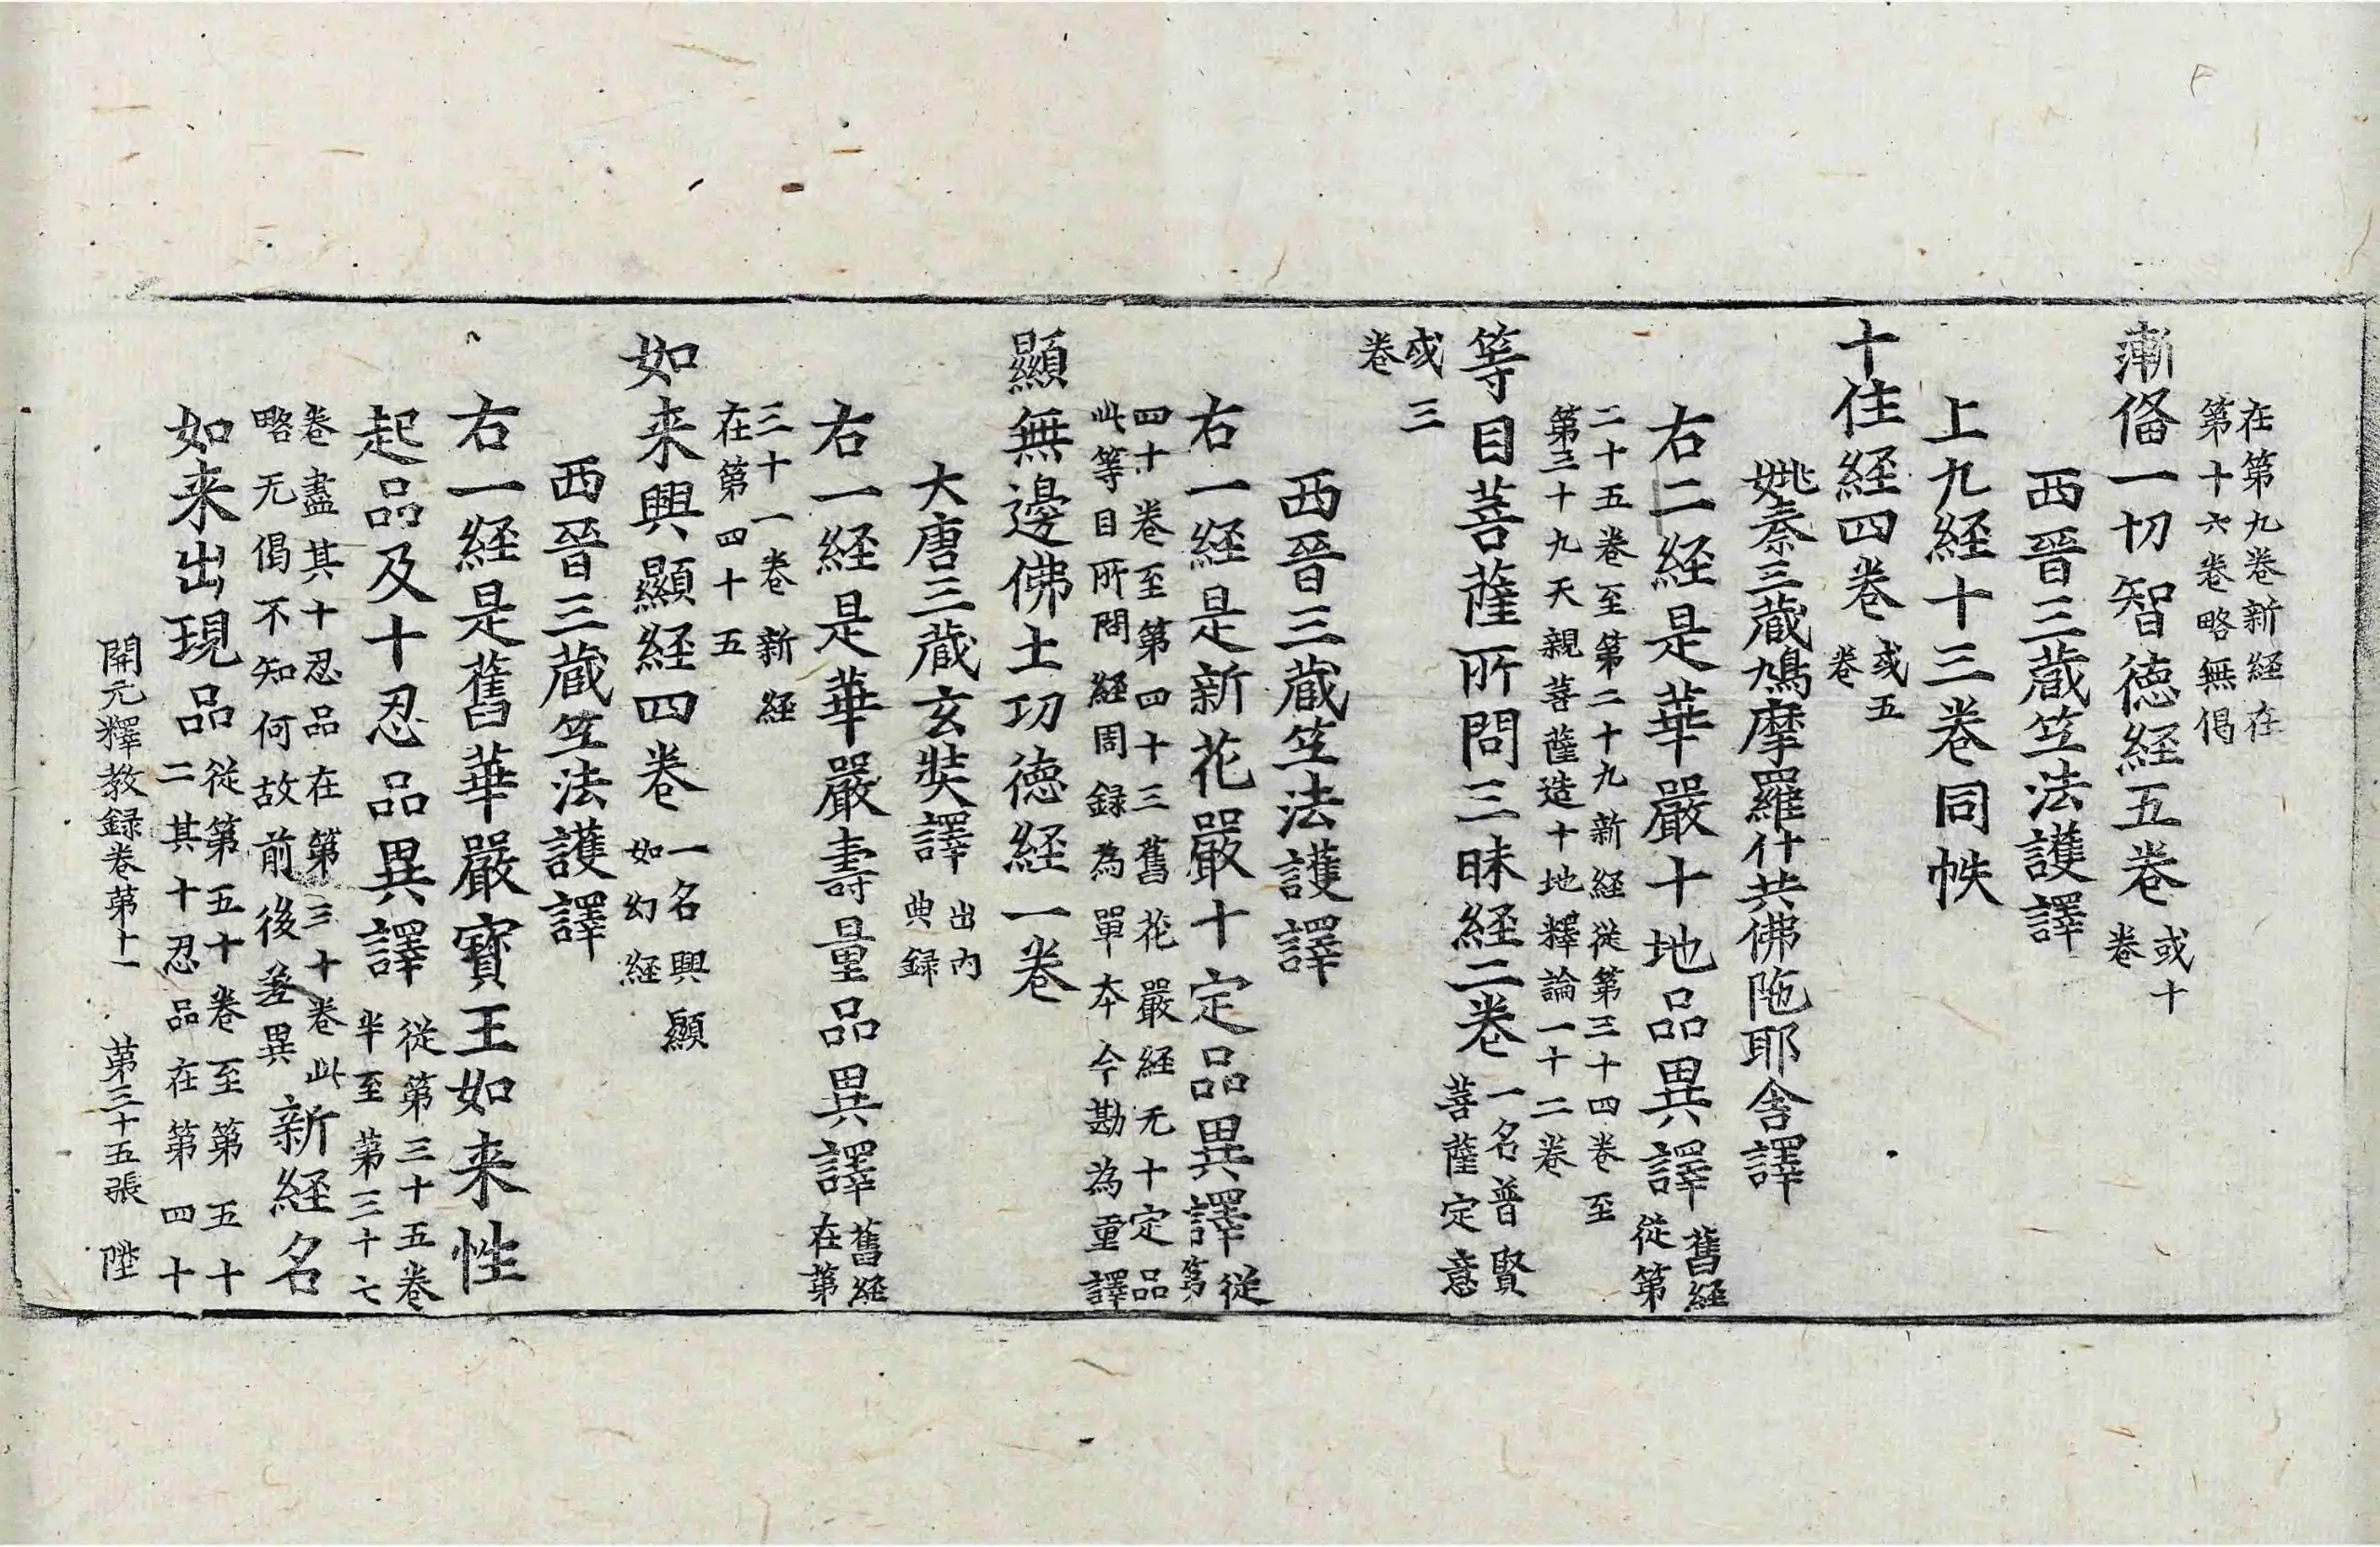 在第九卷新経在
第十六卷略無偈
漸偹一切智徳経五卷或十
卷
西晉三蔵笁法護譯
上九経十三卷同帙
十住経四卷或五
卷
姚秦三蔵鳩摩羅什共佛陁耶舎譯
右二経是華嚴十地品異譯舊経
從第
二十五卷至第二十九新経從第三十四卷至
第三十九天親菩薩造十地釋論一十二卷
等目菩薩所問三昧経二卷一名普賢
菩薩定意
或三
卷
西晉三蔵笁法護譯
右一経是新花嚴十定品異譯從
第
四十卷至第四十三舊花嚴経无十定品
此等目所問経周録為單夲今勘為重譯
顯無邊佛土功徳経一卷
大唐三蔵玄奘譯出內
典録
右一経是華嚴壽量品異譯舊経
在第
三十一卷新経
在第四十五
如来興顯経四卷一名興顯
如幻経
西晉三蔵笁法護譯
右一経是舊華嚴寳王如来性
起品及十忍品異譯從第三十五卷
半至第三十七
卷盡其十忍品在第三十卷此
略无偈不知何故前後差異新経名
如来出現品從第五十卷至第五十
二其十忍品在第四十
開元釋教録卷第十一　第三十五張　陞